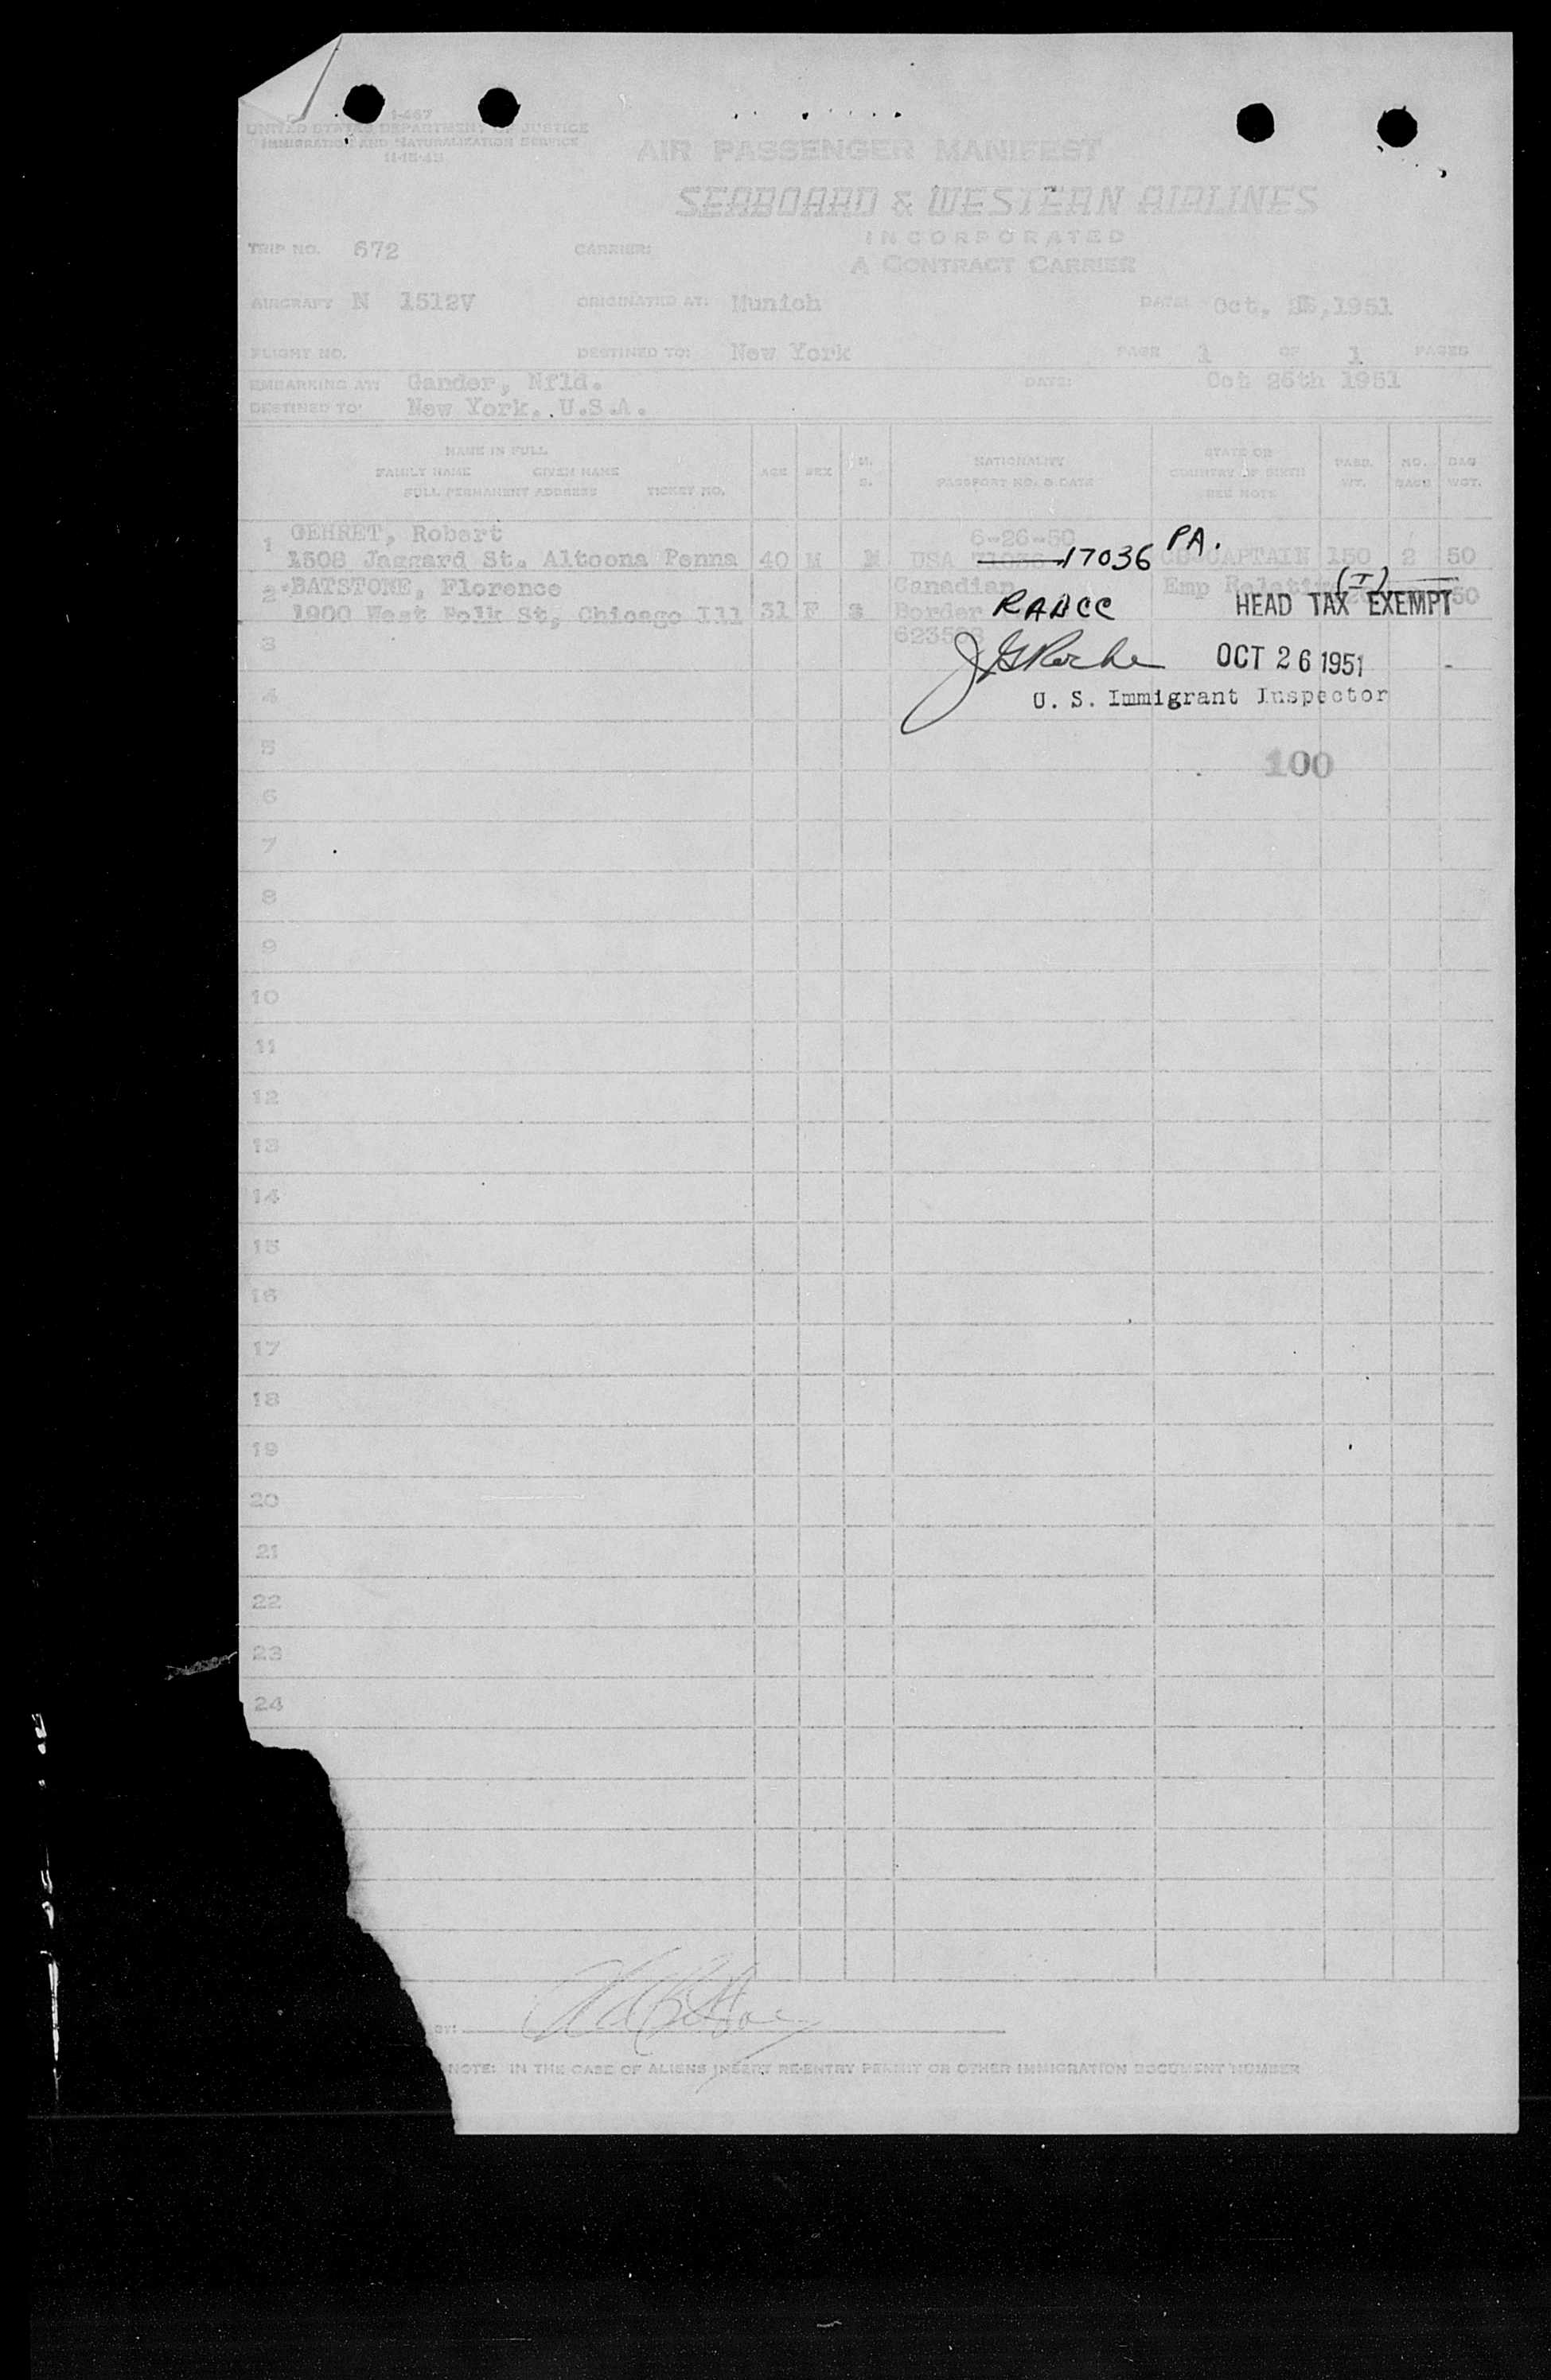 I-467
UNITED STATES DEPARTMENT OF JUSTICE
IMMIGRATION AND NATURALIZATION SERVICE
AIR PASSENGER MANIFEST
SEABOARD & WESTERN AIRLINES
INCORPORATED
A CONTRACT CARRIER
TRIP NO. 672 CARRIER:
AIRCRAFT N 1512V ORIGINATED AT: Munich DATE: Oct, 1951
FLIGHT NO. DESTINED TO: New York PAGE 1 OF 1 PAGES
EMBARKING AT: Gander, Nfld. DATE: Oct 26th 1951
DESTINED TO: New York. U.S.A.
NAME IN FULL
FAMILY NAME GIVEN NAME
FULL PERMANENT ADDRESS TICKET NO.
AGE SEX M. S.
NATIONALITY
PASSPORT NO. & DATE
STATE OR
COUNTRY OF BIRTH
SEE NOTE
PASS. WT.
NO. BAGS
BAG WGT.
1 GEHRET, Robert 6-26-50 PA.
1508 Jaggard St. Altoona Penna 40 M M USA 17036 CAPTAIN 150 2 50
2 BATSTONE, Florence Canadian Emp (I)
1900 West Polk St, Chicago Ill 31 F S Border RABCC HEAD TAX EXEMPT 50
3 OCT 26 1951
4 U. S. Immigrant Inspector
5 100
6
7
8
9
10
11
12
13
14
15
16
17
18
19
20
21
22
23
24
BY:
NOTE: IN THE CASE OF ALIENS INSERT RE-ENTRY PERMIT OR OTHER IMMIGRATION DOCUMENT NUMBER